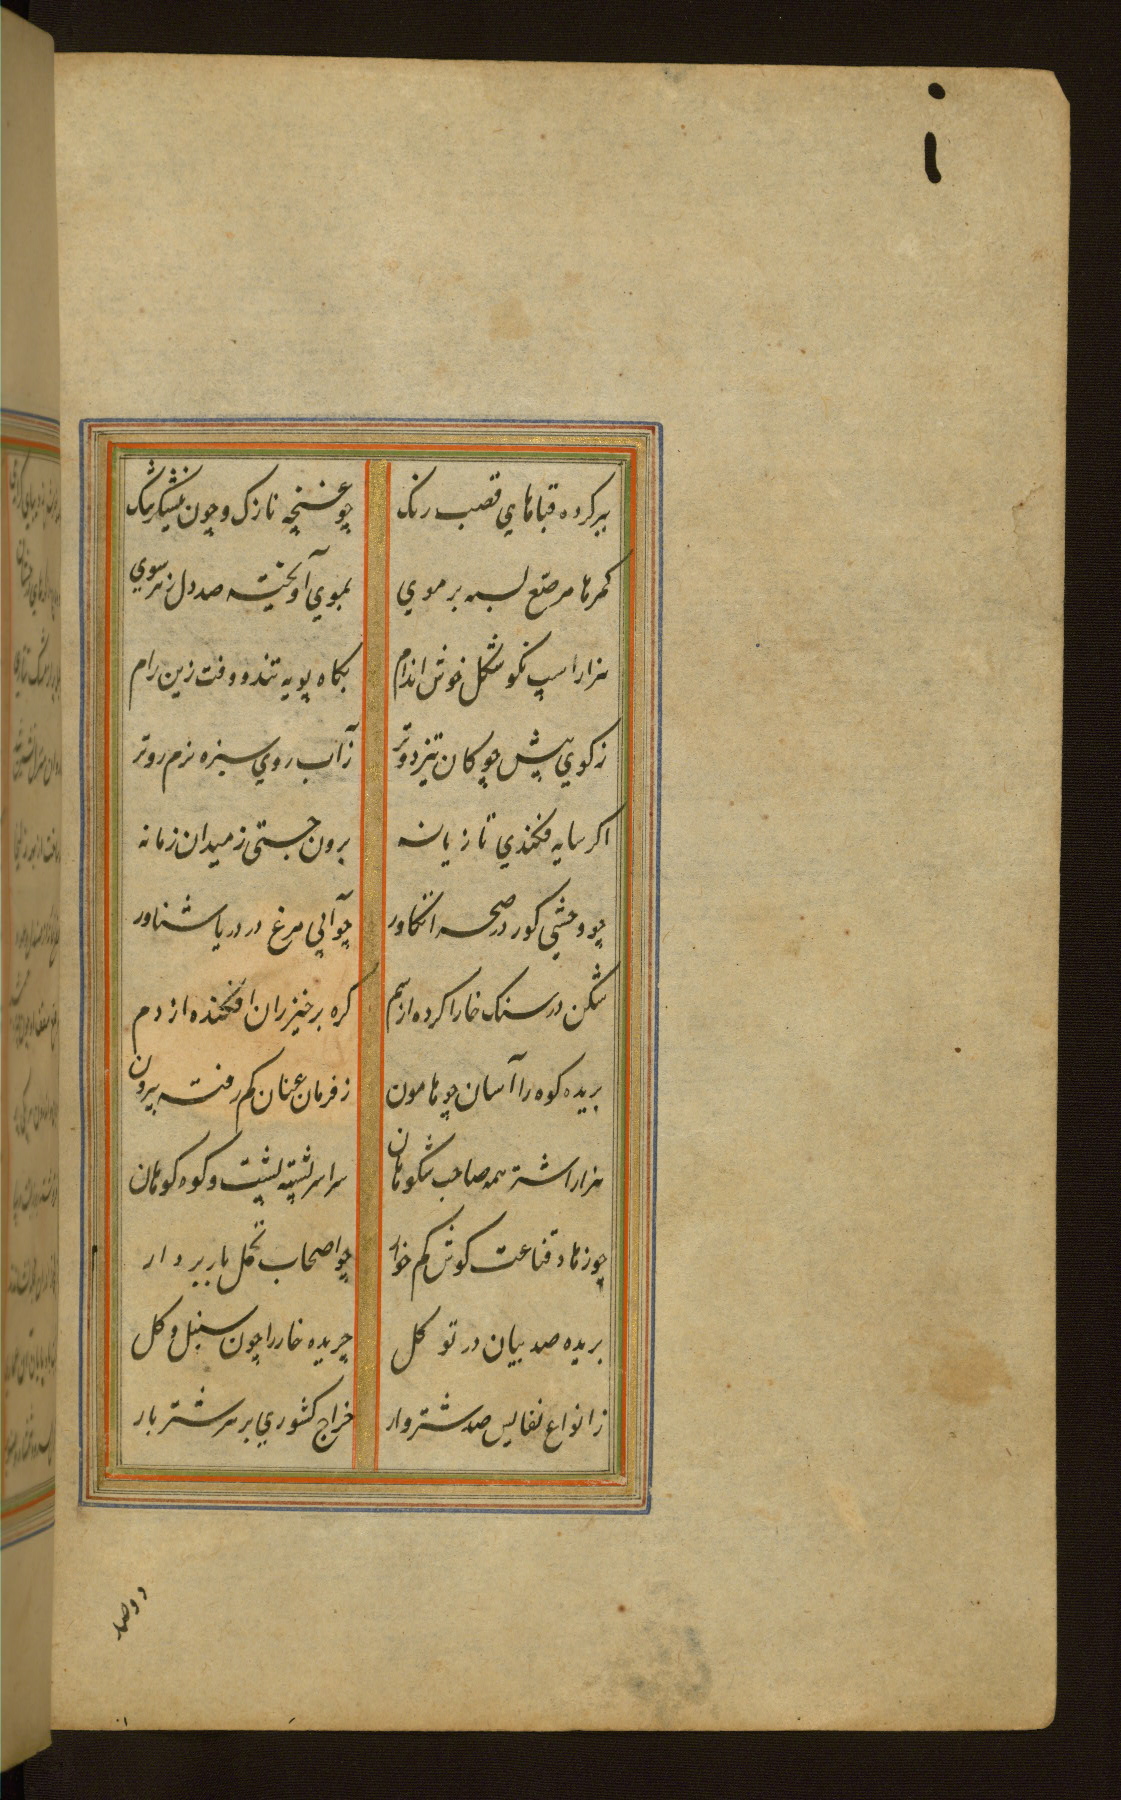 ببر کرده قباهای قصب رنک
چو غنچه نازک و چون نیشکر تنک
کمرها مرصع بسته بر موی
بموی آویخته صد دل ز هر سوی
هزار اسپ نکو شکل خوش اندام
بکاه پویه تند و وقت زین رام
ز کوی پیش چوکان تیز دوتر
ز آب روی سبزه نرم روتر
اکر سایه فکندی تازیانه
برون جستی ز میدان زمانه
چو وحشی کور در صحرا تکاور
چو آبی مرغ در دریا شناور
شکن در سنک خارا کرده از سم
کره بر خیزران افکنده از دم
بریده کوه را آسان چو هامون
ز فرمان عنان کم رفته بیرون
هزار اشتر همه صاحب شکوهان
سراسر پشته پشت و کوه کوهان
چو زهاد قناعت کوش کم خوار
چو اصحاب تحمل بار بردار
بریده صد بیابان در توکل
چریده خار را چون سنبل و کل
ز انواع نفایس صد شتروار
خراج کشوری بر هر شتر بار
دو صد